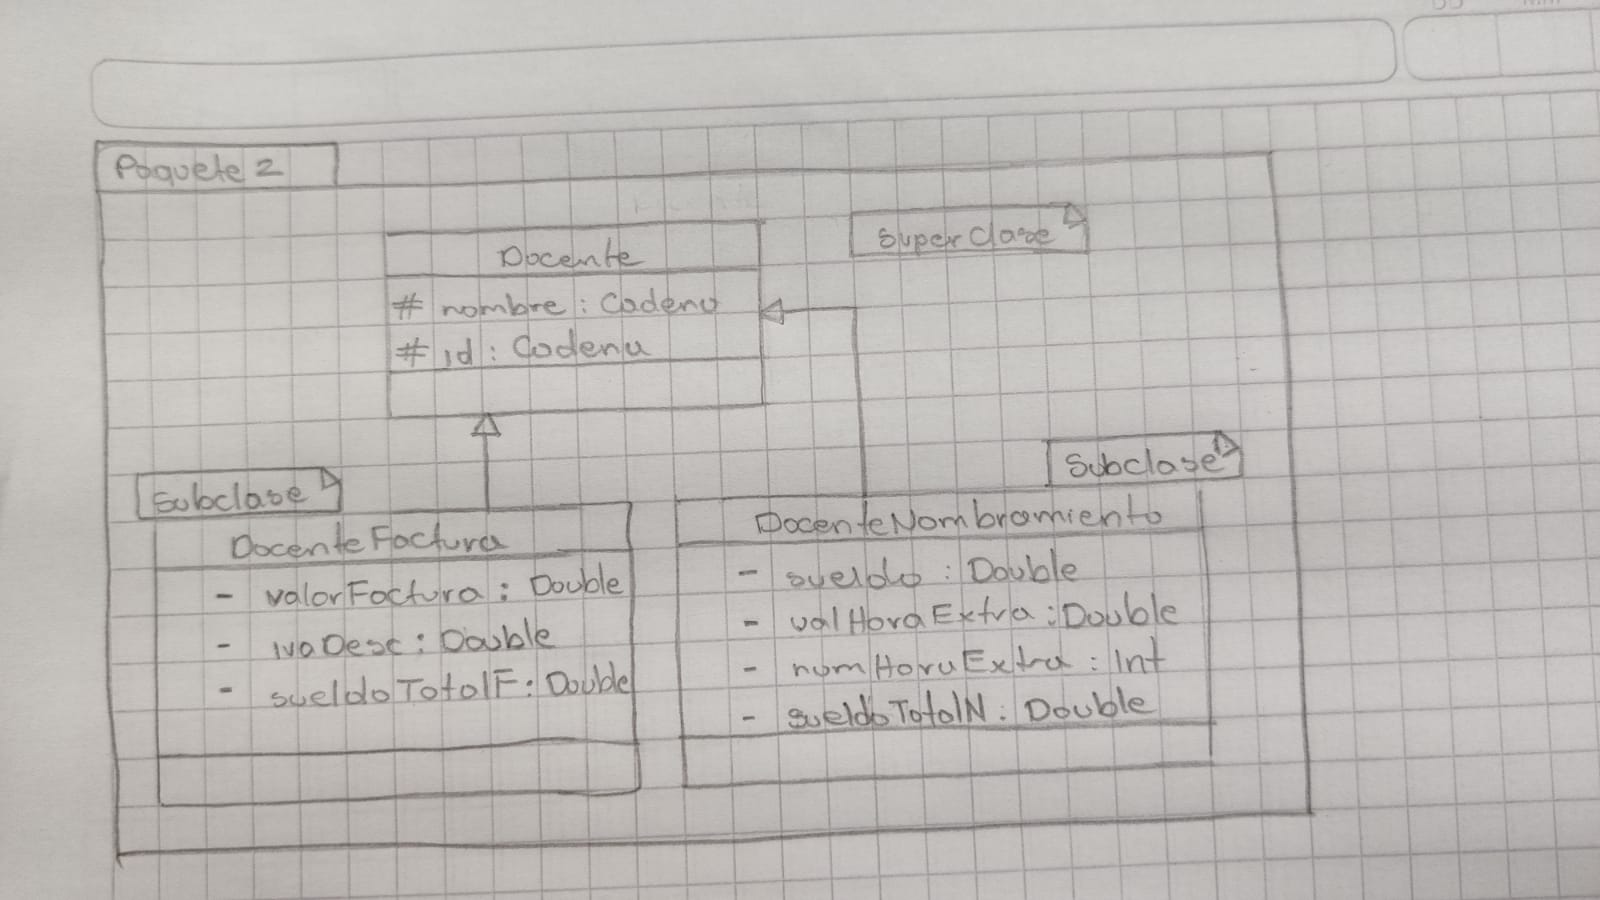 Paquete 2
Superclase
Docente
# nombre : Cadena
# id : Cadena
Subclase
DocenteFactura
- valorFactura : Double
- ivaDesc : Double
- sueldoTotalF : Double
Subclase
DocenteNombramiento
- sueldo : Double
- valHoraExtra : Double
- numHoraExtra : Int
- sueldoTotalN : Double